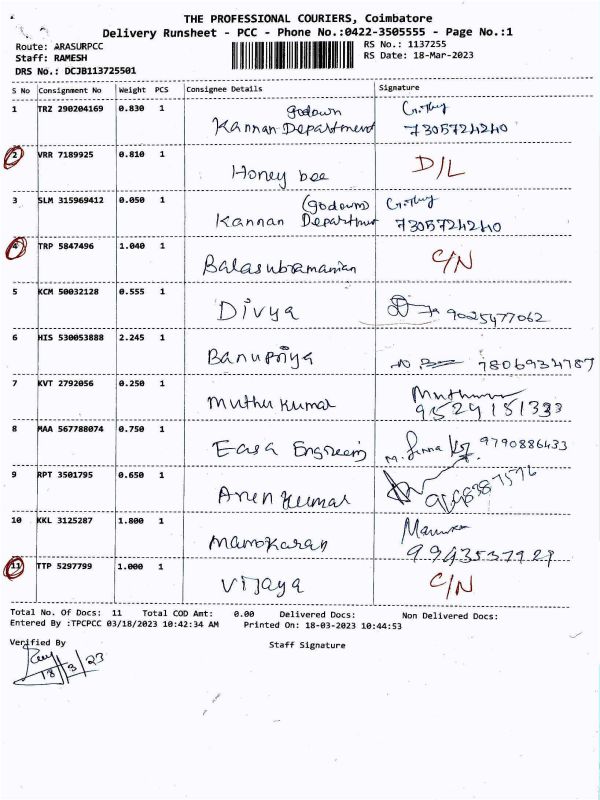 THE PROFESSIONAL COURIERS, Coimbatore
Delivery Runsheet - PCC - Phone No.:0422-3505555 - Page No.:1
Route: ARASURPCC
Staff: RAMESH
DRS No.: DCJB113725501
RS No.: 1137255
RS Date: 18-Mar-2023
S No Consignment No Weight PCS Consignee Details Signature
1 TRZ 290204169 0.830 1 godown
Kannan Department 7305724240
2 VRR 7189925 0.810 1 Honey bee D/L
3 SLM 315969412 0.050 1 (godown)
Kannan Department 7305724240
4 TRP 5847496 1.040 1 Balasubramanian C/N
5 KCM 50032128 0.555 1 Divya 9025477062
6 HIS 530053888 2.245 1 Banupriya 7806934787
7 KVT 2792056 0.250 1 Muthu Kumar
8 MAA 567788074 0.750 1 9790886433
9 RPT 3501795 0.650 1 Arun Kumar
10 KKL 3125287 1.800 1 Manokaran
11 TTP 5297799 1.000 1 Vijaya C/N
Total No. Of Docs: 11 Total COD Amt: 0.00 Delivered Docs: Non Delivered Docs:
Entered By :TPCPCC 03/18/2023 10:42:34 AM Printed On: 18-03-2023 10:44:53
Verified By Staff Signature
18/3/23